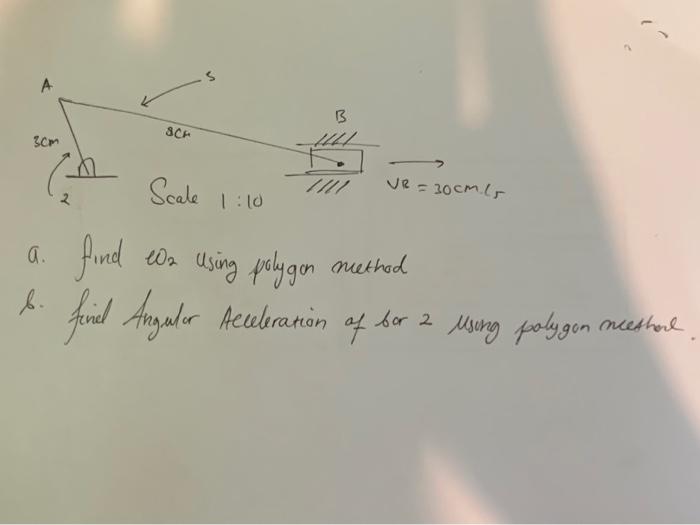 A
3
B
3cm
8cm
2
Scale 1:10
VB = 30cm/s
a. find ω2 using polygon method
b. find Angular Acceleration of bar 2 Using polygon method.